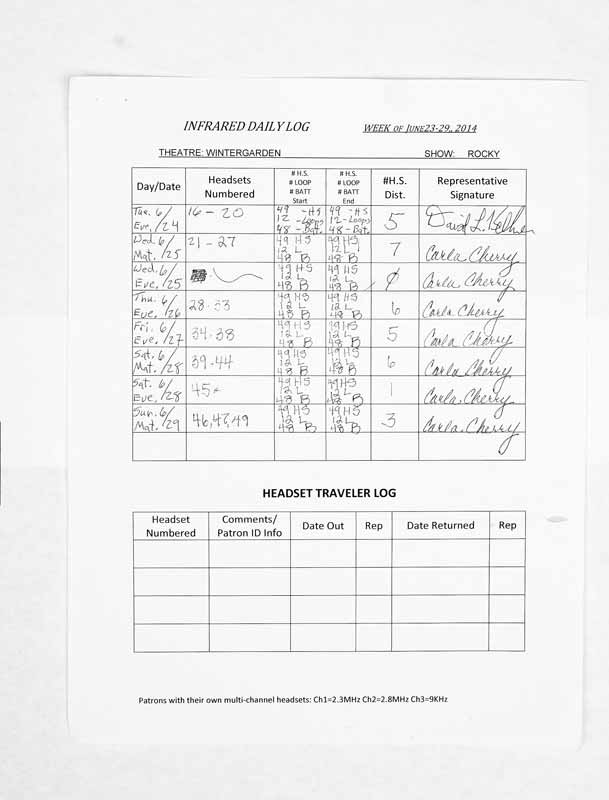 INFRARED DAILY LOG WEEK OF JUNE23-29, 2014
THEATRE: WINTERGARDEN SHOW: ROCKY
Day/Date
Headsets
Numbered
# H.S.
# LOOP
# BATT
Start
# H.S.
# LOOP
# BATT
End
#H.S.
Dist.
Representative
Signature
Tue. 6/
Eve, /24
16 - 20
49 - HS
12 - Loops
48 - Bat.
49 - HS
12 - Loops
48 - Bat.
5
David L.
Wed 6/
Mat. /25
21 - 27
49 HS
12 L
48 B
49 HS
12 L
48 B
7
Carla Cherry
Wed. 6/
Eve, /25
49 HS
12 L
48 B
49 HS
12 L
48 B
Carla Cherry
Thu. 6/
Eve, /26
28-33
49 HS
12 L
48 B
49 HS
12 L
48 B
6
Carla Cherry
Fri. 6/
Eve. /27
34-38
49 HS
12 L
48 B
49 HS
12 L
48 B
5
Carla Cherry
Sat. 6/
Mat. /28
39-44
49 HS
12 L
48 B
49 HS
12 L
48 B
6
Carla Cherry
Sat. 6/
Eve. /28
45
49 HS
12 L
48 B
49 HS
12 L
48 B
1
Carla Cherry
Sun. 6/
Mat. /29
46, 47, 49
49 HS
12 L
48 B
49 HS
12 L
48 B
3
Carla Cherry
HEADSET TRAVELER LOG
Headset
Numbered
Comments/
Patron ID Info
Date Out
Rep
Date Returned
Rep
Patrons with their own multi-channel headsets: Ch1=2.3MHz Ch2=2.8MHz Ch3=9KHz